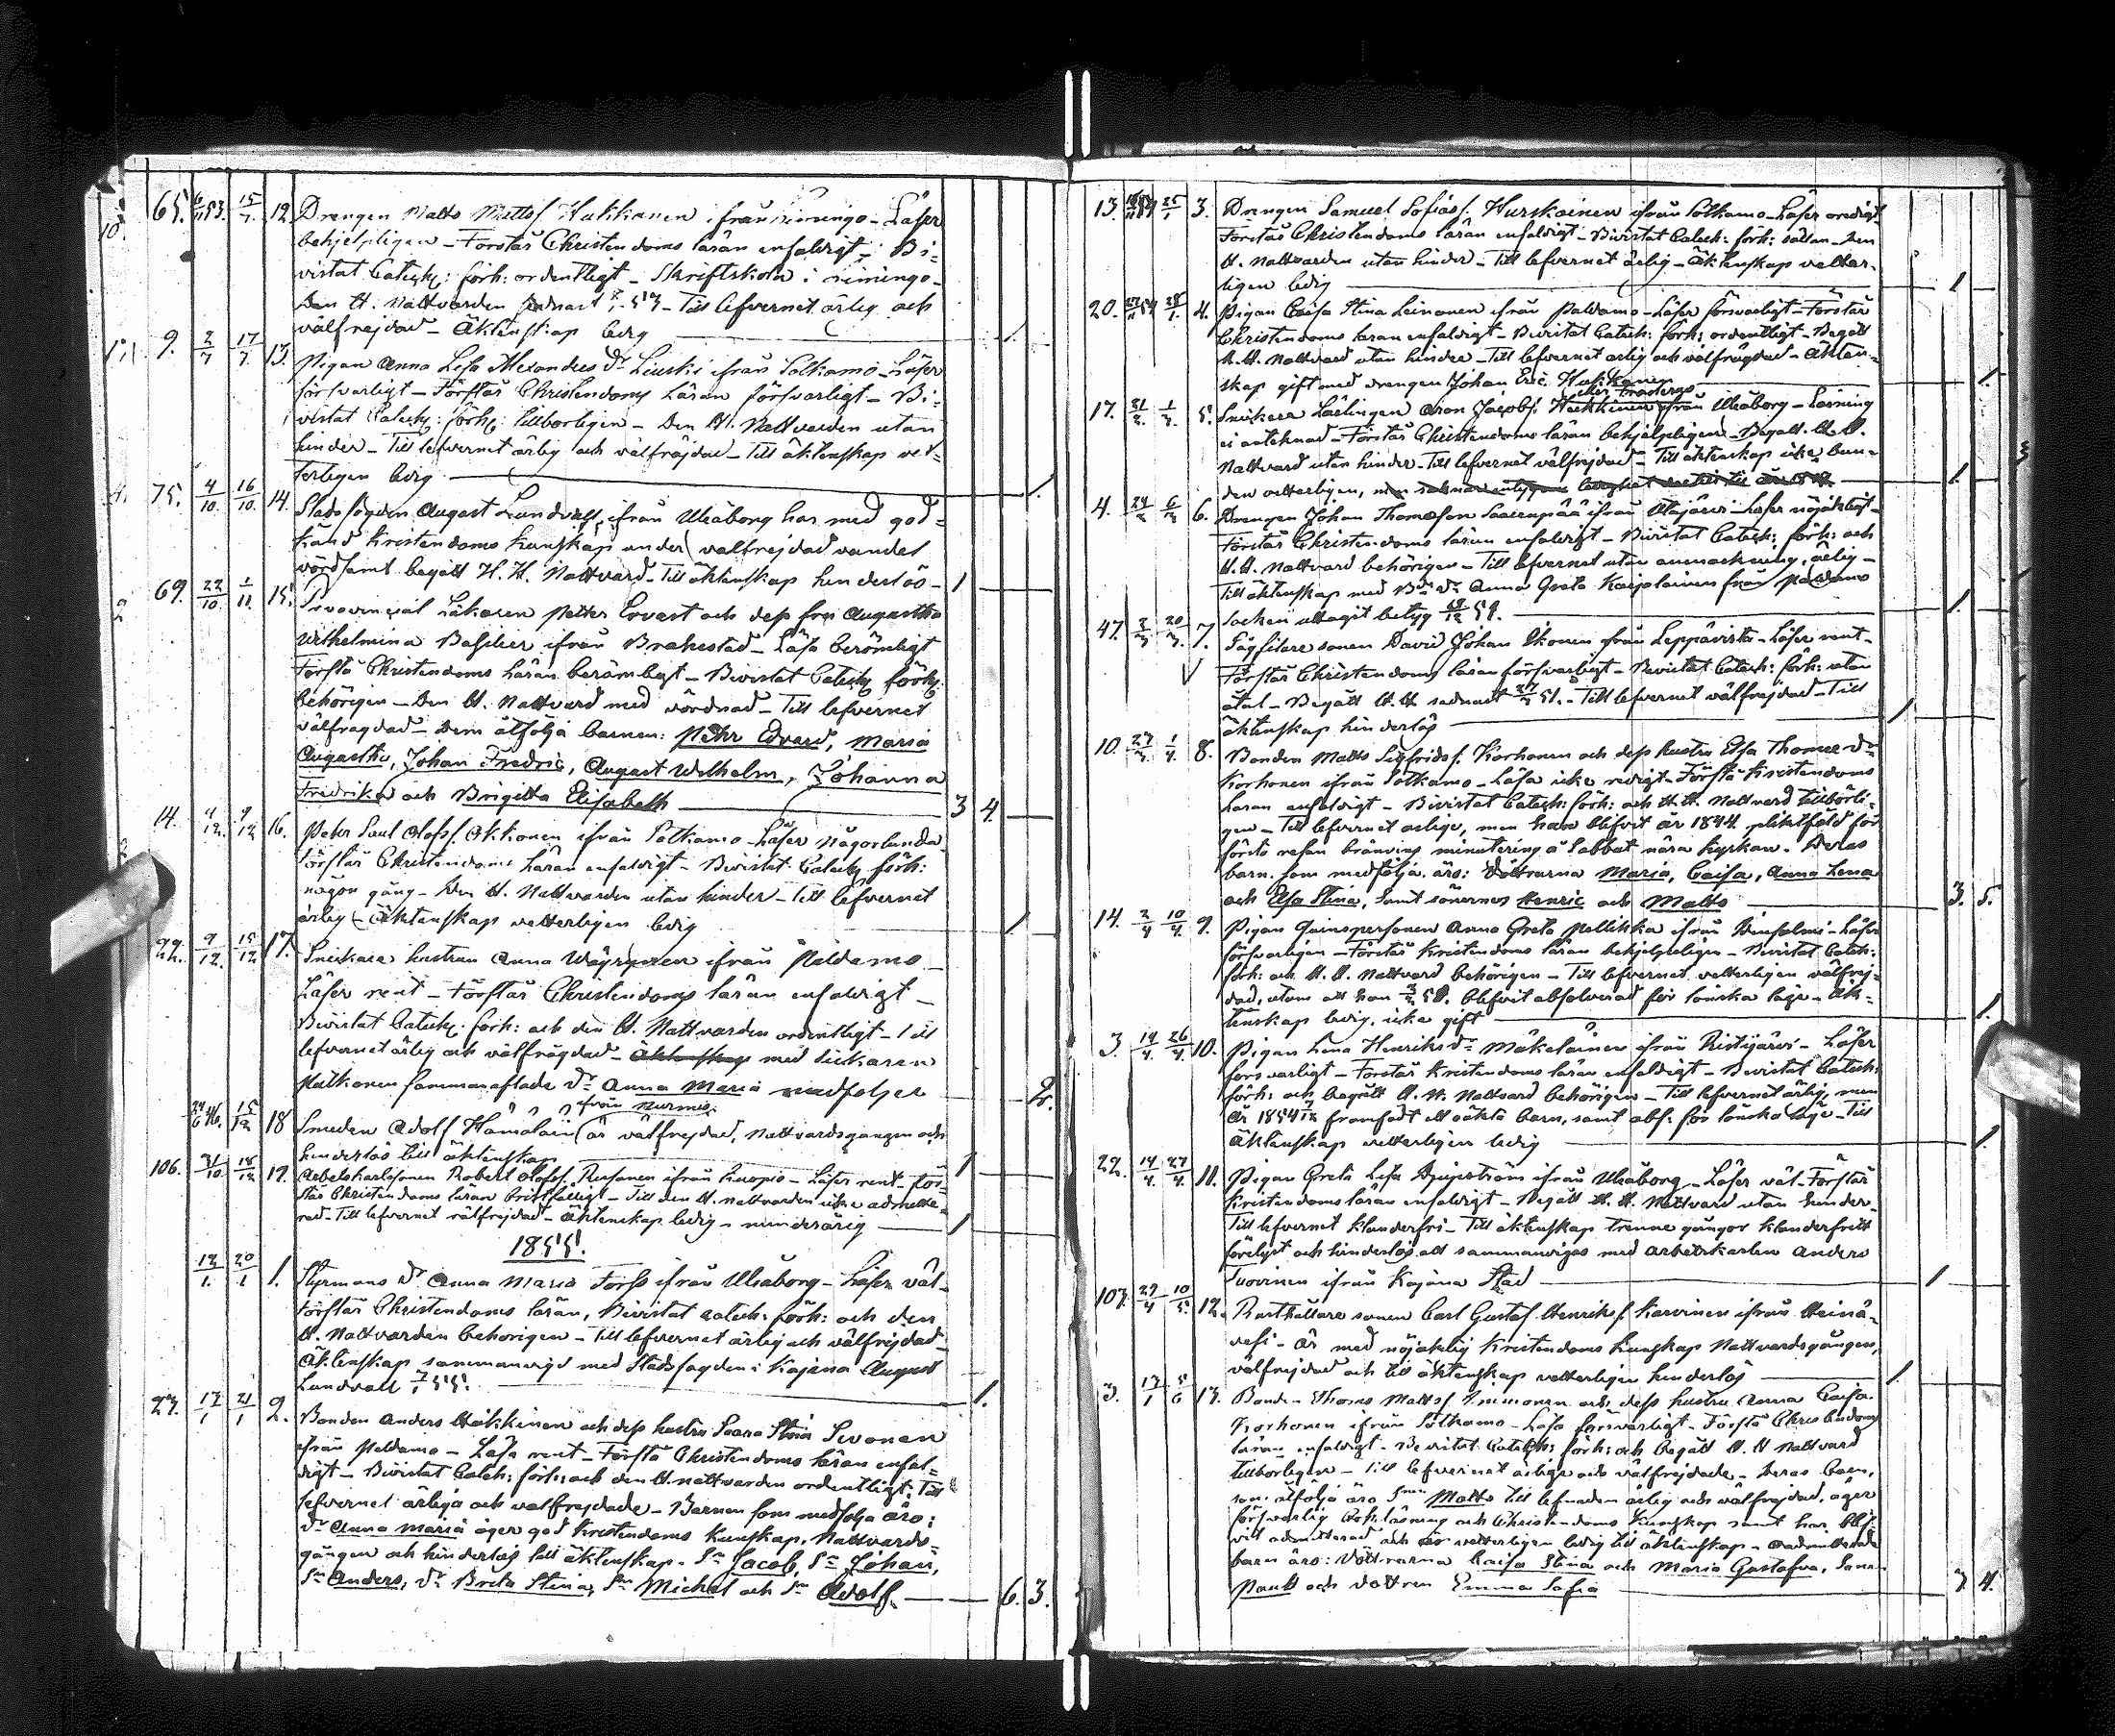 65. 6/11 53. 15/7. 12. Drengen Matts Mattsf. Hakkanen ifrån Liminngo – Läser
behjelpligen – Förstår Christendoms läran enfaldigt – Bi=
vistat Catech: förh: ordentligt – Skriftskola i Limingo –
Den H. Nattvarden sednast 53 – Till lefvernet ärlig och
välfrejdad – Äktenskap ledig 1.
9. 2/7 17/7. 13. Pigan Anna Lisa Alexanders dr Liuski ifrån Sotkamo – Läser
försvarligt – Förstår Christendoms Läran försvarligt – Bi=
vistat Catech: förh: tillbörligen – Den H. Nattvarden utan
hinder – Till lefvernet ärlig och välfräjdad – Till äktenskap vet=
terligen ledig 1.
75. 4/10 16/10. 14. Stadsfogden August Lundvall, ifrån Uleåborg har med god=
känd Kristendoms Kunskap under välfrejdad vandel
vördsamt begått H. H. Nattvard – Till äktenskap hinderlös – 1
69. 22/10. 1/11. 15. Provincial Läkaren Petter Ervast och dess fru Augustha
Wilhelmina Bascher ifrån Brahestad – Läsa berömligt
Förstå Christendoms Läran berömligt – Bivistat Catech: förh:
behörigen – Den H. Nattvard med vördnad – Till lefvernet
välfrägdad – Dem åtfölja barnen: Pehr Edvard, Maria
Augusta, Johan Fredric, August Wilhelm, Johanna
Fredrika och Brigitta Elisabeth 3 4.
14. 4/12. 9/12 16. Pehr Paul Olofsf. Okkonen ifrån Sotkamo – Läser någorlunda
Förstår Christendoms Läran enfaldigt – Bivistat Catech: förh:
någon gång – Den H. Nattvarden utan hinder – Till lefvernet
ärlig – Äktenskap vetterligen ledig 1.
22. 9/12. 15/12 17. Snickare hustrun Anna Wäyrynen ifrån Paldamo –
Läser rent – Förstår Christendoms läran enfaldigt –
Bivistat Catech: förh: och den H. Nattvarden ordentligt – Till
lefvernet ärlig och välfrägdad – Äktenskap med Snickaren
Matkonen sammanaflade dr Anna Maria medföljer 2.
24/6 46. 15/12 18 Smeden Adolf Hämäläin från Nurmis. är välfrejdad, Nattvardsgången och
hinderlös till äktenskap 1
106. 31/10 18/12 19. Arbetskarlssonen Robert Olofsf. Rusonen ifrån Kuopio – Läser rent – För=
står Christendoms läran bristfälligt – Till den H. Nattvarden icke admitte=
rad – Till lefvernet välfrejdad – Äktenskap ledig – minderårig 1
1855.
12/1. 20/1 1. Styrmans dr Anna Maria Forss ifrån Uleåborg – Läser väl –
Förstår Christendoms läran, Bivistat catech: förh: och den
H. Nattvarden behörigen – Till lefvernet ärlig och välfrejdad
Äktenskap sammanvigd med Stadsfogden i Kajana August
Lundvall 7/1 55. 1.
23. 13/1 21/1 2. Bonden Anders Hakkinen och dess hustru Saara Stina Sivonen
ifrån Paldamo – Läsa rent – Förstå Christendoms läran enfal=
digt – Bivistat Catech: förh: och den H. nattvarden ordentligt. Till
lefvernet ärliga och välfrejdade – Barnen som medfölja äro:
dr Anna Maria äger god Kristendoms Kunskap, Nattvards=
gången och hinderlös till äktenskap. Sn Jacob, Sn Johan,
Sn Anders, dr Brita Stina, Sn Michel och Sn Adolf. 6. 3.
13. 54 25/1 3. Drengen Samuel Sofiasf. Hurskainen ifrån Sotkamo – Läser oredigt
Förstår Christendoms läran enfaldigt – Bivistat Catech: förh: sällan – Den
H. Nattvarden utan hinder – Till lefvernet ärlig – Äktenskap vetter=
ligen ledig 1
20. 54 28/1. 4. Pigan Caisa Stina Leinonen ifrån Paldamo – Läser försvarligt – Förstår
Christendoms läran enfaldigt – Bivistat Catech: förh: ordentligt – Begått
H. H. Nattvard utan hinder – Till lefvernet ärlig och välfrägdad – Äkten=
skap gift med drengen Johan Eric Hakkanen 1.
17. 31/2. 1/3 5. Snickare Lärlingen Aron Jacobsf. Heikkinen ifrån Uleåborg – Läsning
ei antecknad – Förstår Christendoms läran behjelpligen – Begått H. H.
Nattvard utan hinder – Till lefvernet välfrejdad – Till äktenskap icke bun=
den vetterligen, 1.
4. 24/2 6/3 6. Drengen Johan Thomasson Saarenpää ifrån Alajärvi – Läser nöjaktigt –
Förstår Christendoms läran enfaldigt – Bivistat Catech: förh: och
H. H. Nattvard behörigen – Till lefvernet utan anmärkning, ärlig –
Till äktenskap med Bde dr Anna Greta Karjalainen från Paldamo
Socken uttagit betyg 1.
47. 3/3 20/3. 7. Sågfilare sonen David Johan Ikonen ifrån Leppävirta – Läser rent –
Förstår Christendoms läran försvarligt – Bivistat Catech: förh: utan
åtal – Begått H. H. sednast 51. – Till lefvernet välfrejdad – Till
äktenskap hinderlös 1
10. 27/3. 1/4 8. Bonden Matts Sigfridsf. Korhonen och dess hustru Elsa Thomae dr
Korhonen ifrån Sotkamo – Läsa icke redigt – Förstå Kristendoms
läran enfaldigt – Bivistat Catech: förh: och H. H. Nattvard tillbörli=
gen – Till lefvernet ärlige, men han blifvit år 1844 pliktfäld för
första resan bränvins minutering å Sabbat nära kyrkan. Deras
barn som medfölja äro: döttrarna Maria, Caisa, Anna Lena
och Elsa Stina, samt sönerna Henric och Matts 3. 5.
14. 2/4 10/4. 9. Pigan Qvinspersonen Anna Greta Pellikka ifrån Idensalmi – Läser
försvarligen – Förstår Kristendoms läran behjelpeligen – Bivistat Catech:
förh: och H. H. Nattvard behörigen – Till lefvernet vetterligen välfrej=
dad, utom att hon blifvit absolverad för lönska läge – Äk=
tenskap ledig, icke gift 1.
3. 14/4. 26/4 10. Pigan Lena Henriks dr Mäkeläinen ifrån Ristijärvi – Läser
försvarligt – Förstår Kristendoms läran enfaldigt – Bivistat Catech:
förh: och begått H. H. Nattvard behörigen – Till lefvernet ärlig, men
år 1854 framfödt ett oäkta barn, samt abs: för lönska läge – Till
Äktenskap vetterligen ledig 1.
22. 14/4. 27/4. 11. Pigan Greta Lisa ifrån Uleåborg – Läser väl – Förstår
Kristendoms läran enfaldigt – Begått H. H. Nattvard utan hinder –
Till lefvernet klanderfri – Till äktenskap trenne gångor klanderfritt
förelyst och hinderlös att sammanvigas med arbetskarlen Anders
Tuovinen ifrån Kajana Stad 1
103. 29/4 10/5 12. Rusthållare sonen Carl Gustaf Henriksf. Karvinen ifrån Heinä=
vesi – Är med nöjaktig Kristendoms Kunskap Nattvardsgången,
välfrejdad och till äktenskap vetterligen hinderlös 1
3. 13/1 5/6 13. Bonden Thomas Mattsf. Timmonen och dess hustru Anna Caisa
Korhonen ifrån Sotkamo – Läsa försvarligt – Förstå Christendoms
läran enfaldigt – Bevistat Catech: förh: och begått H. H Nattvard
tillbörligen – Till lefvernet ärliga och välfrejdade – Deras barn,
som åtfölja äro Sn Matts till lefnaden ärlig och välfrejdad, äger
försvarlig läsning och Christendoms Kunskap samt har blif=
vit admitterad och är vetterligen ledig till äktenskap – oadmitterade
barn äro: Döttrarna Caisa Stina och Maria Gustafva, Sonen
Paul och dottren Emma Sofia 3. 4.